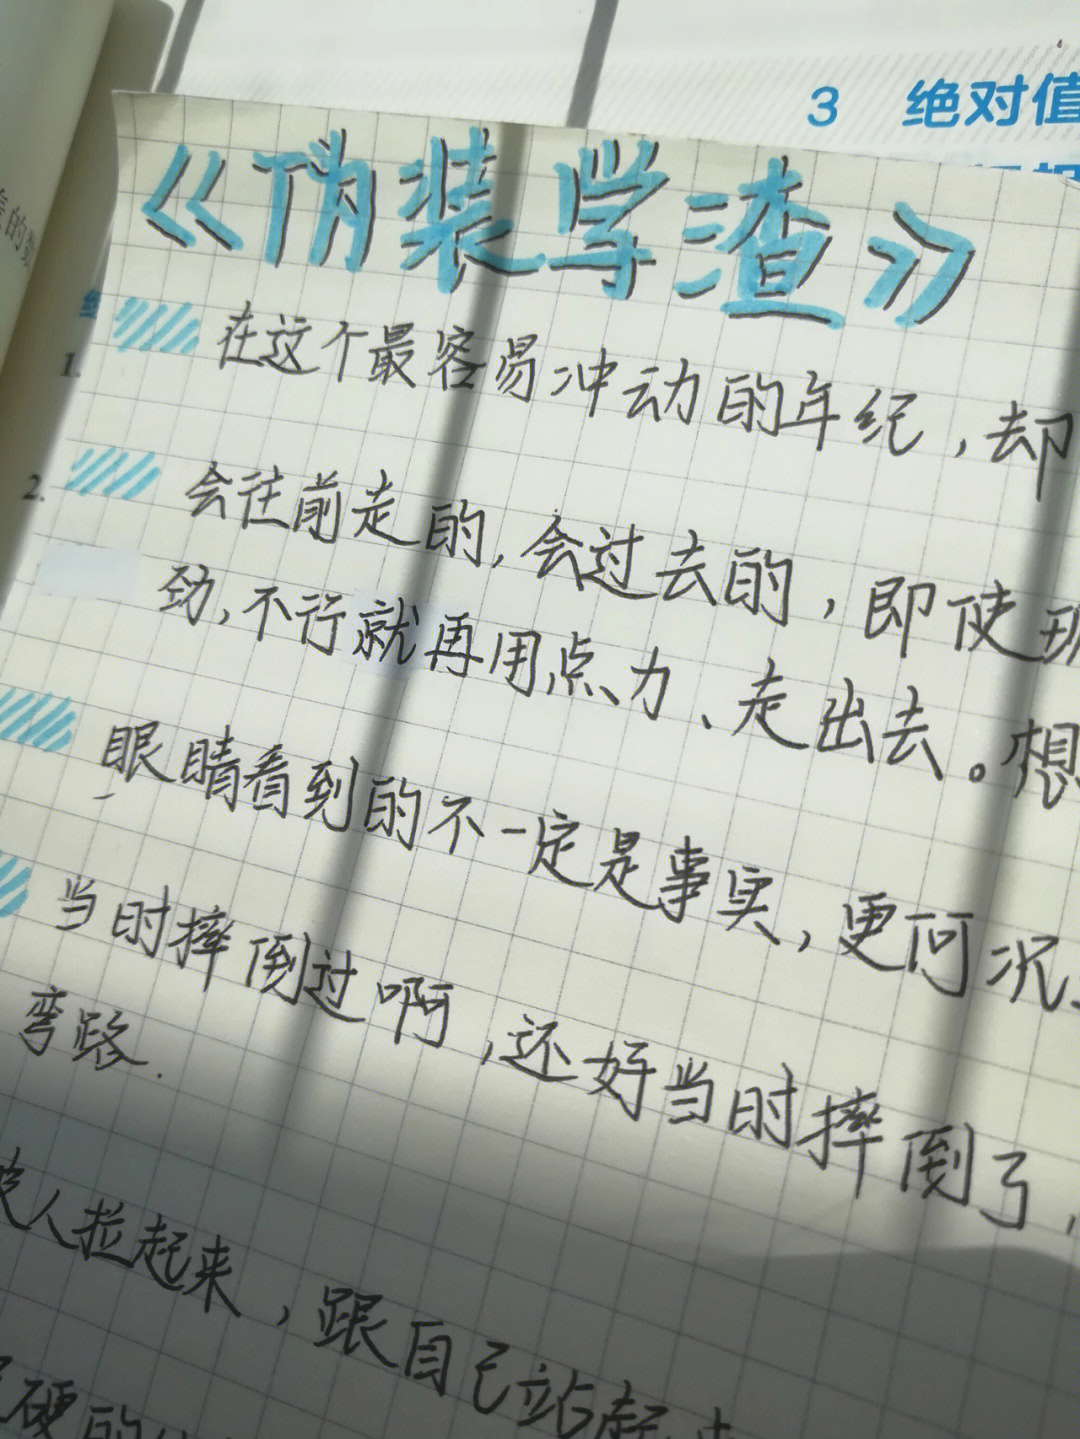 3 绝对值
《伪装学渣》
在这个最容易冲动的年纪，却
1.
会往前走的，会过去的，即使
2.
劲，不行就再用点力、走出去。想
眼睛看到的不一定是事实，更何况
当时摔倒过啊，还好当时摔倒了，
弯路.
人拉起来，跟自己站起来
硬的